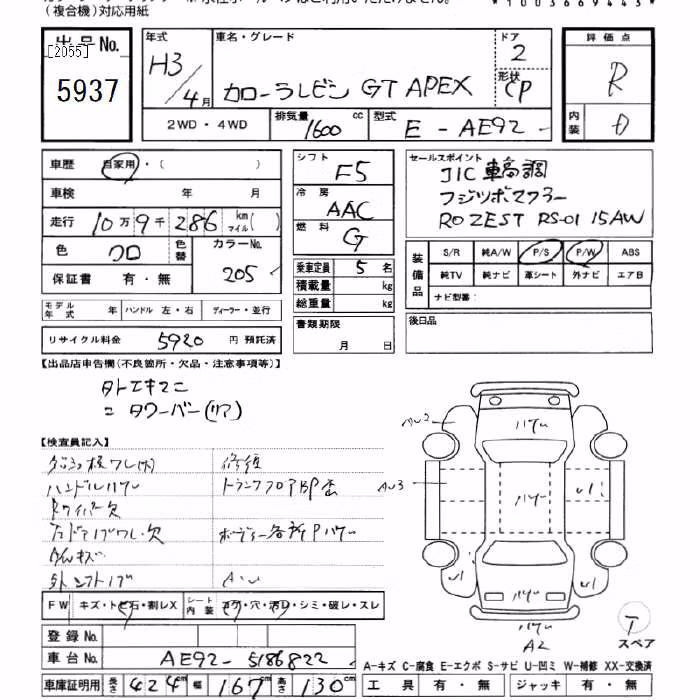 (複合機)対応用紙
出品No. [2055] 5937
年式 H3/4月
車名・グレード カローラレビン GT APEX
ドア 2
形状 CP
2WD・4WD
排気量 1600 cc
型式 E-AE92
評価点 R
内装 D
車歴 自家用・( )
車検 年 月
走行 10万9千286 km マイル( )
色 クロ
色替
カラーNo. 205
保証書 有・無
モデル年式 年 ハンドル 左・右 ディーラー・並行
リサイクル料金 5920 円 預託済
シフト F5
冷房 AAC
燃料 G
乗車定員 5 名
積載量 kg
総重量 kg
書類期限
月 日
セールスポイント
JIC車高調
フジツボマフラー
ROZEST RS-01 15AW
装備品 S/R 純A/W P/S P/W ABS
純TV 純ナビ 革シート 外ナビ エアB
ナビ型番:
後日品
【出品店申告欄(不良箇所・欠品・注意事項等)】
タワーバー(リア)
【検査員記入】
ハンドルハゲ
Rワイパー欠
修復
ボディー各所Pハゲ
AW
FW キズ・トビ石・割レX
シート内装 コゲ・穴・汚レ・シミ・破レ・スレ
登録No.
車台No. AE92-5186822
車庫証明用 長さ 424cm 幅 167cm 高さ 130cm
AU2
AU3
ハゲ
ハゲ
ハゲ
ハゲ
A2
U1
U1
U1
T
スペア
A-キズ C-腐食 E-エクボ S-サビ U-凹ミ W-補修 XX-交換済
工具 有・無 ジャッキ 有・無